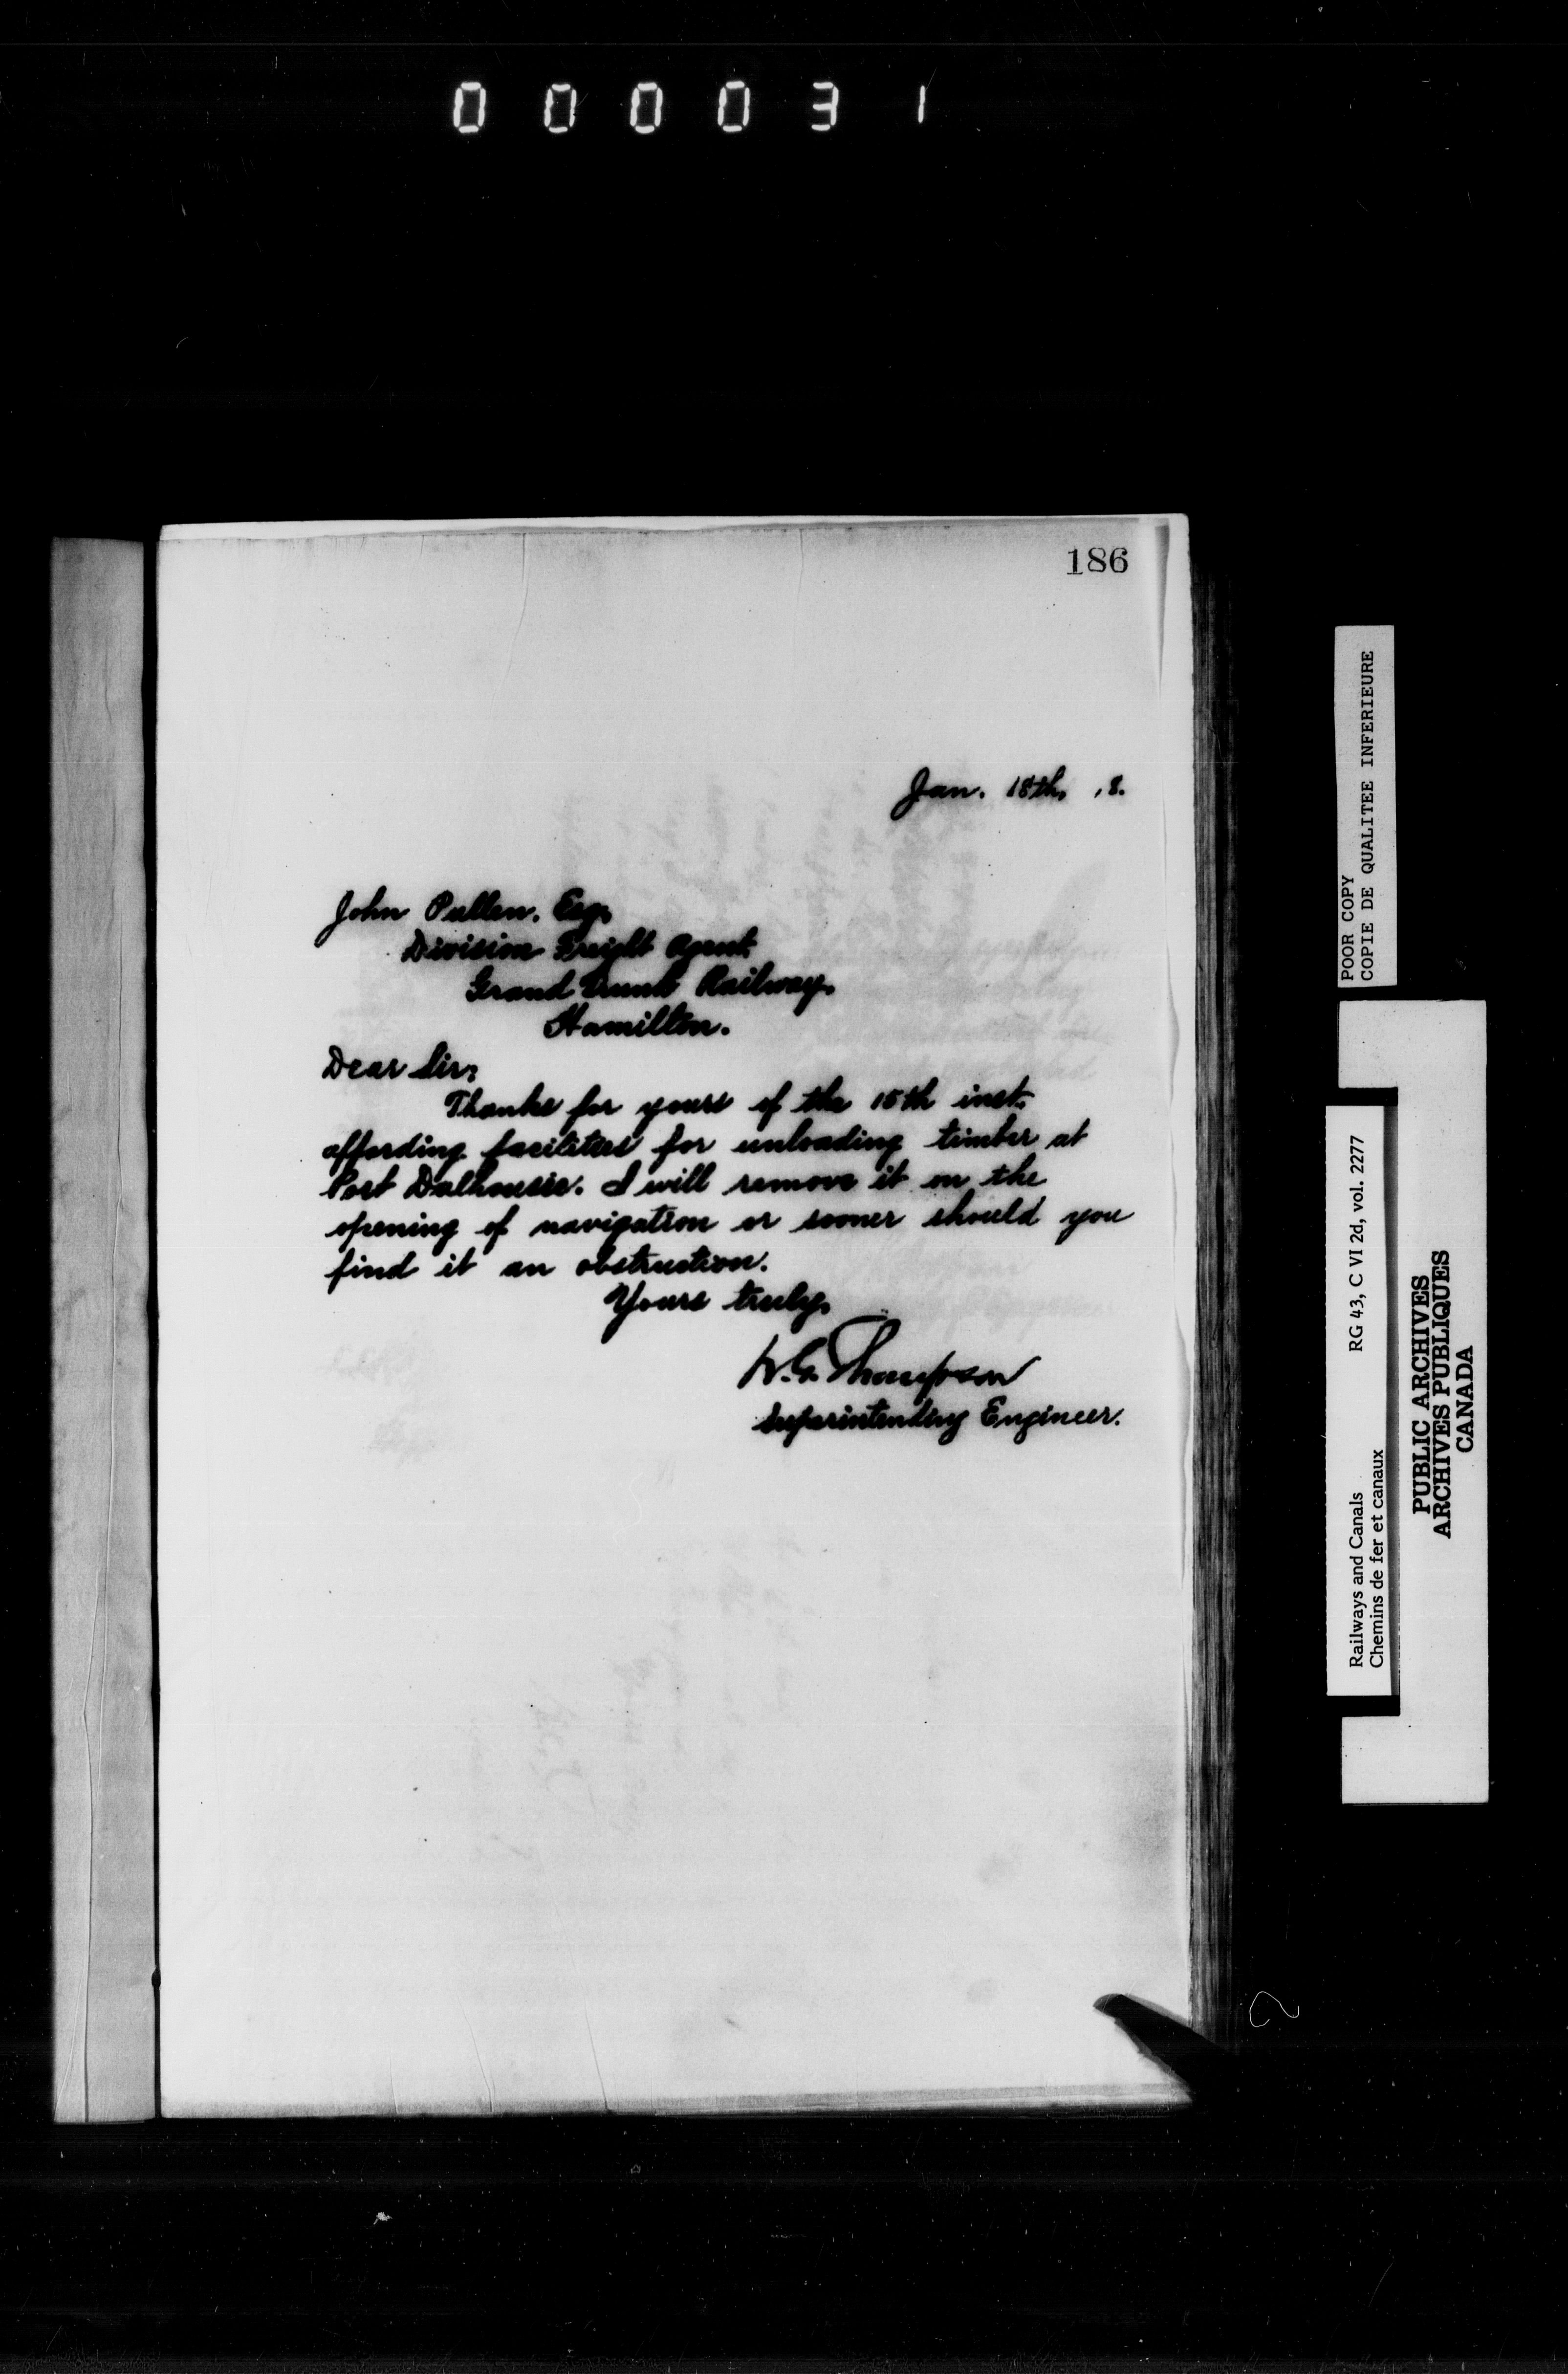 000031
186
Jan. 18th, , 8.
John Pullen. Esq.
Division Freight Agent,
Grand Trunk Railway,
Hamilton.
Dear Sir,
Thanks for yours of the 15th inst.
affording facilities for unloading timber at
Port Dalhousie. I will remove it on the
opening of navigation or sooner should you
find it an obstruction.
Yours truly,
W. G. Thompson
Superintending Engineer.
POOR COPY
COPIE DE QUALITEE INFERIEURE
Railways and Canals RG 43, C VI 2d, vol. 2277
Chemins de fer et canaux
PUBLIC ARCHIVES
ARCHIVES PUBLIQUES
CANADA